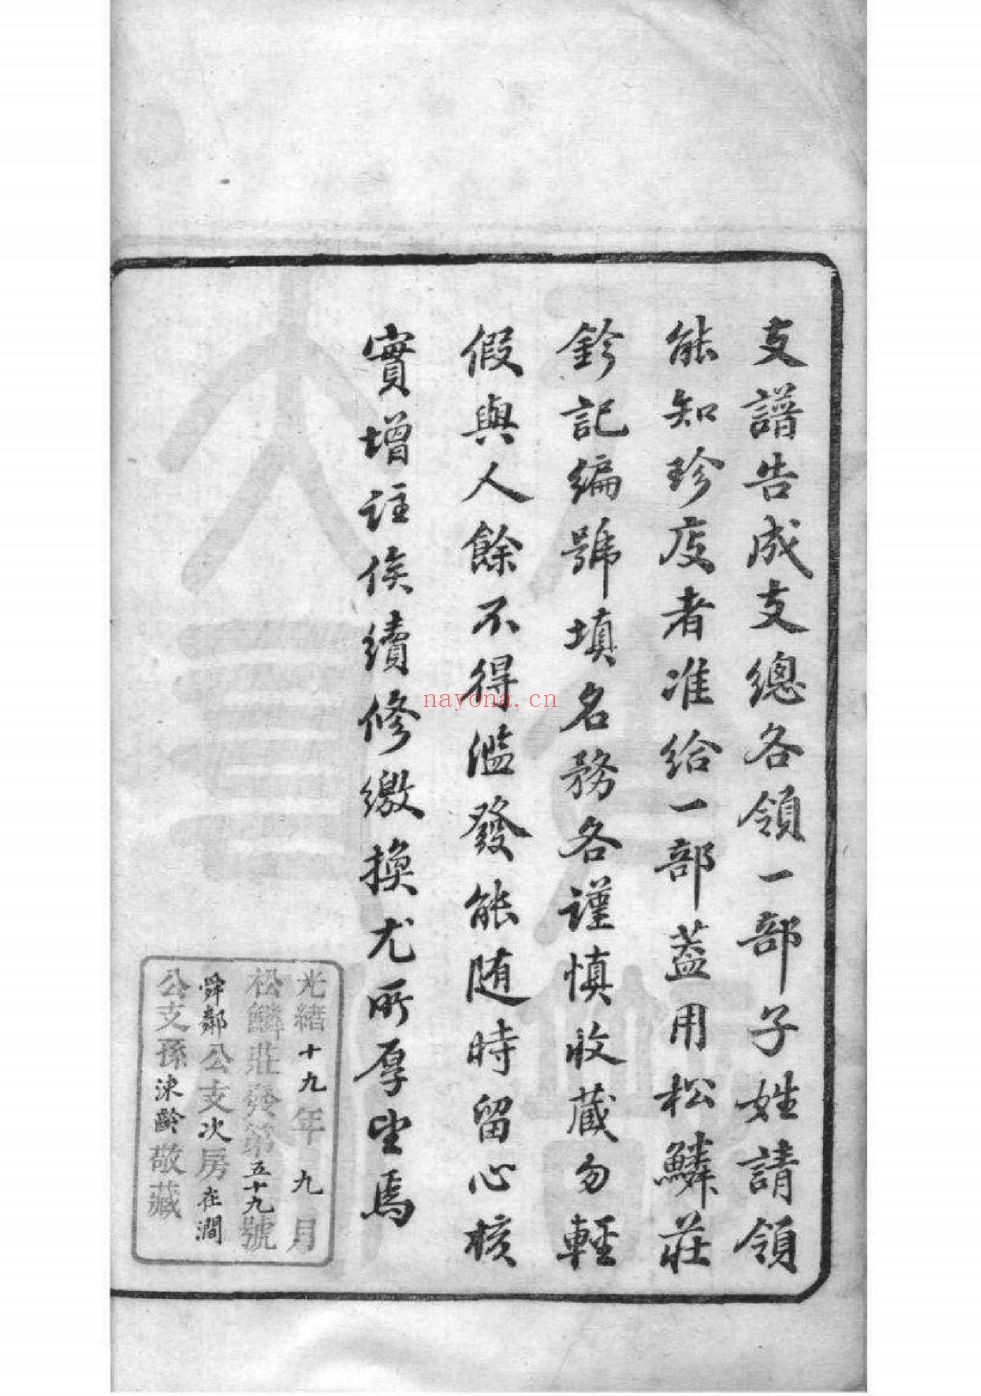 支譜告成支總各領一部子姓請領
能知珍庋者准給一部蓋用松鱗莊
鈐記編號填名務各謹慎收藏勿輕
假與人餘不得濫發能随時留心核
實增註俟續修繳換尤所厚望焉
光緒十九年九月
松鱗莊發第五十九號
舜鄰公支次房在澗
公支孫涑齡敬藏
nayona.cn